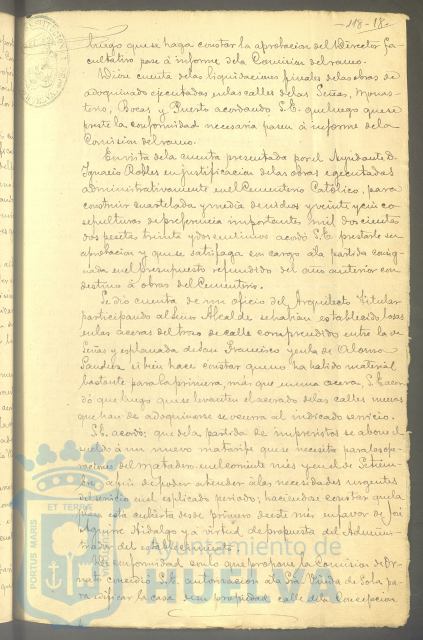 118-18
luego que se haga constar la aprobacion del Director fa-
cultativo pase á informe de la Comision del ramo.
Dióse cuenta de las liquidaciones finales de las obras de
adoquinado ejecutadas en las calles de las Señas, Monas-
terio, Bocas y Puerto acordando S.E. que luego que se
preste la conformidad necesaria pasen á informe de la
Comision del ramo.
En vista de la cuenta presentada por el Ayudante D.
Ignacio Robles en justificacion de las obras ejecutadas
administrativamente en el Cementerio Católico, para
construir cuartelada y media de nichos y veinte y cinco
sepulturas de preferencia importantes mil doscientas
dos pesetas treinta y dos centimos acordó S.E. prestarle su
aprobacion y que se satisfaga con cargo á la partida consig-
nada en el presupuesto refundido del año anterior con
destino á obras del Cementerio.
Se dió cuenta de un oficio del Arquitecto Titular
participando al Señor Alcalde se habian establecido losas
en las aceras del trozo de calle comprendido entre la de
Señas y esplanada de San Francisco y en la de Alonso
Sanchez si bien hace constar que no ha habido material
bastante para la primera, más que en una acera, S.E. acor-
dó que luego que se levanten el acerado de las calles nuevas
que han de adoquinarse se ocurra al indicado servicio.
S.E. acordó: que de la partida de imprevistos se abone el
sueldo á un nuevo matarife que se necesita para las ope-
raciones del Matadero en el corriente mes y en el de Setiem-
bre á fin de poder atender á las necesidades urgentes
del servicio en el esplicado periodo; haciendose constar que la
plaza está cubierta desde primero de este mes en favor de José
Aguirre Hidalgo y á virtud de propuesta del Adminis-
trador del establecimiento.
De conformidad con lo que propone la Comision de Or-
nato concedió S.E. autorizacion á la Sra. Viuda de Sola pa-
ra edificar la casa de su propiedad calle de la Concepcion
PORTUS MARIS
ET TERRE
Ayuntamiento de
HUELVA